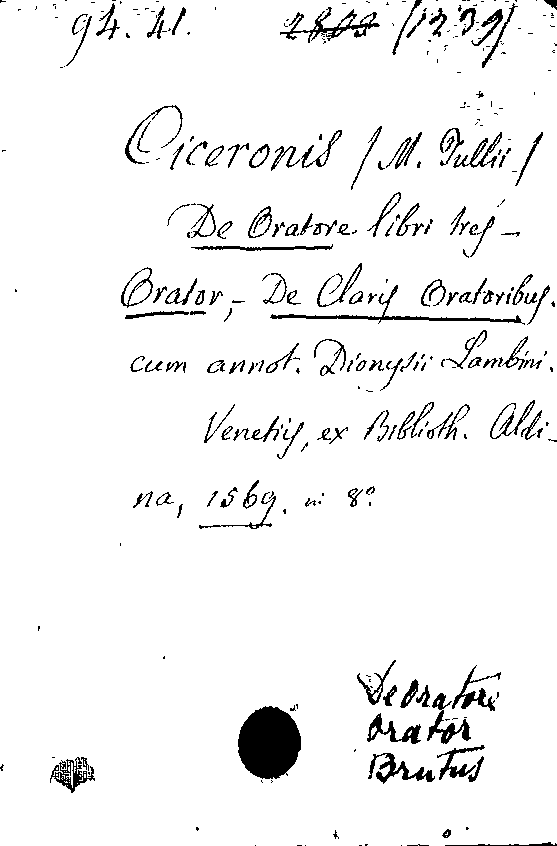 94. 41. 2803 (1239)
Ciceronis / M. Tullii /
De Oratore libri tres –
Orator, – De Claris Oratoribus.
cum annot. Dionysii Lambini.
Venetiis, ex Biblioth. Aldi-
na, 1569. in 8º
De oratore
Orator
Brutus